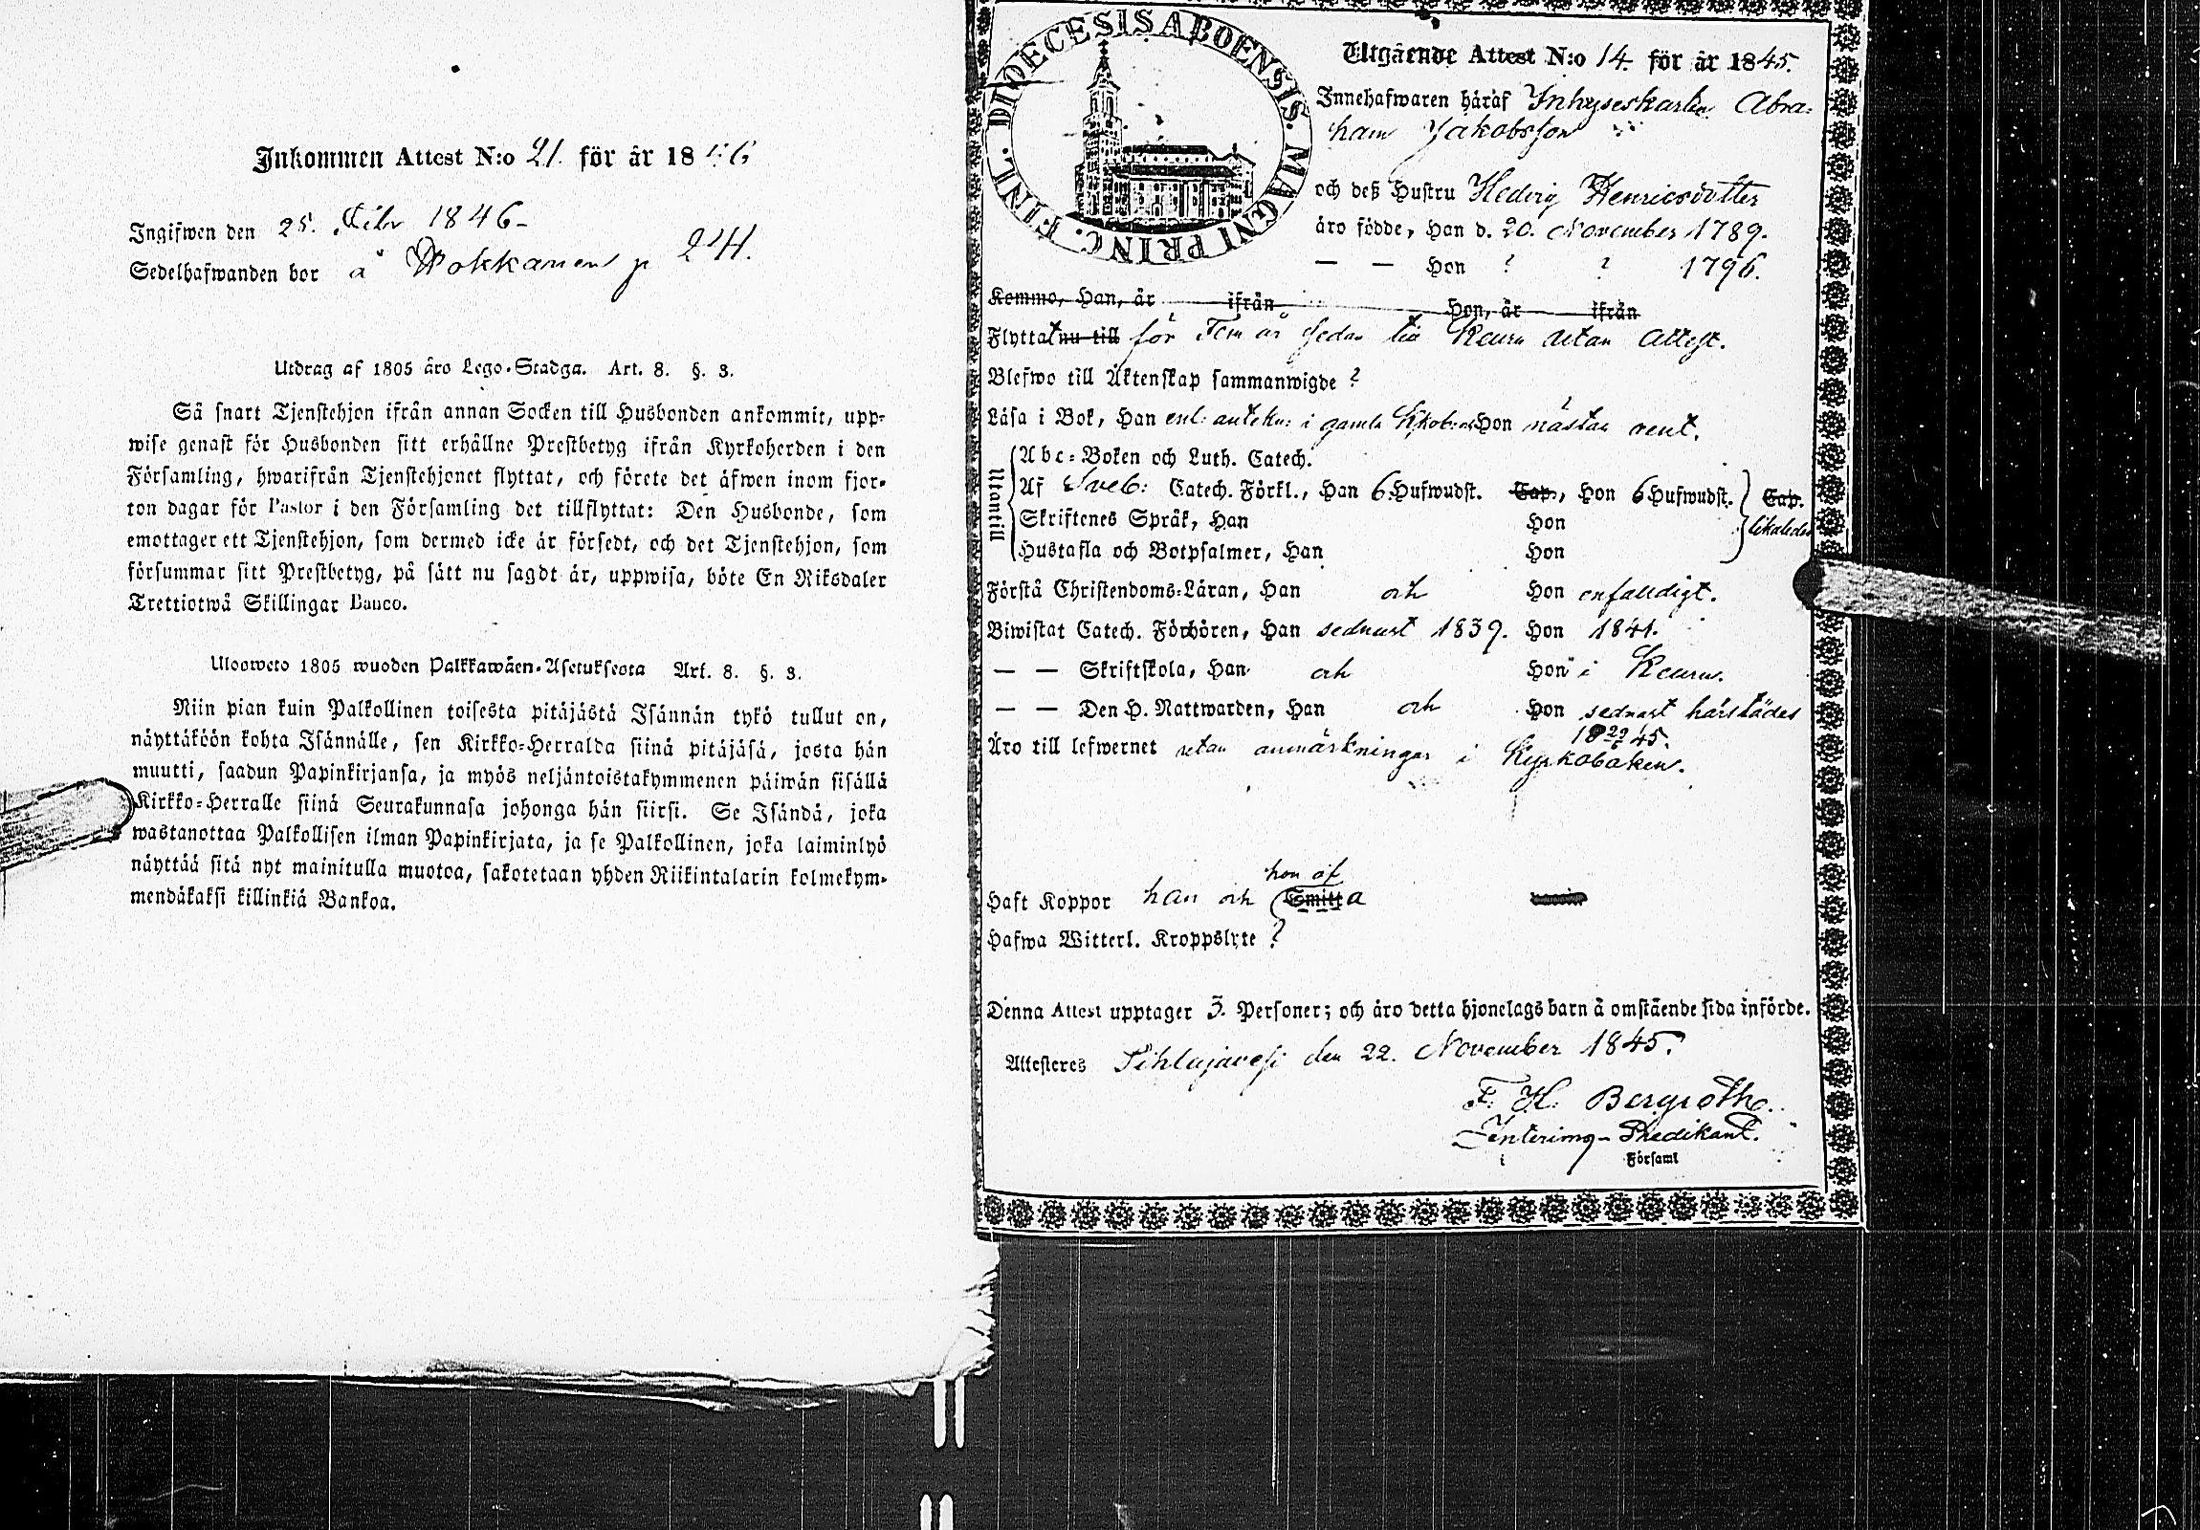 Inkommen Attest N:o 21. för år 1846
Ingifwen den 25. 1846-
Sedelhafwanden bor å Pokkanen p 241.
Utdrag af 1805 åro Lego-Stadga. Art. 8. §. 3.
Så snart Tjenstehjon ifrån annan Socken till Husbonden ankommit, upp-
wise genast för Husbonden sitt erhållne Prestbetyg ifrån Kyrkoherden i den
Församling, hwarifrån Tjenstehjonet flyttat, och förete det äfwen inom fjor-
ton dagar för Pastor i den Församling det tillflyttat: Den Husbonde, som
emottager ett Tjenstehjon, som dermed icke är försedt, och det Tjenstehjon, som
försummar sitt Prestbetyg, på sätt nu sagdt är, uppwisa, böte En Riksdaler
Trettiotwå Skillingar Banco.
Ulosweto 1805 wuoden Palkkawäen-Asetuksesta Art. 8. §. 3.
Niin pian kuin Palkollinen toisesta pitäjästä Isännän tykö tullut on,
näyttäköön kohta Isännälle, sen Kirkko-Herralda siinä pitäjäsä, josta hän
muutti, saadun Papinkirjansa, ja myös neljäntoistakymmenen päiwän sisällä
Kirkko-Herralle siinä Seurakunnasa johonga hän siirsi. Se Isändä, joka
wastanottaa Palkollisen ilman Papinkirjata, ja se Palkollinen, joka laiminlyö
näyttää sitä nyt mainitulla muotoa, sakotetaan yhden Riikintalarin kolmekym-
mendäkaksi killinkiä Bankoa.
DIOECESIS ABOENSIS. MAGNI PRINC. FINL.
Utgående Attest N:o 14. för år 1845.
Innehafwaren häraf Inhyseskarlen Abra-
ham Jakobsson
och deß Hustru Hedvig Henricsdotter
äro födde, Han d. 20. November 1789.
— — Hon ? ? 1796.
Kommo, Han, år ifrån Hon, år ifrån
Flyttat nu till för Fem år sedan till Keuru utan attest.
Blefwo till Äktenskap sammanwigde ?
Läsa i Bok, Han enl: anteckn: i gamla Hon nästan rent.
Utantill
Abc-Boken och Luth. Catech.
Af Sveb: Catech. Förkl., Han 6 Hufwudst. Cap., Hon 6 Hufwudst. Cap.
Skriftenes Språk, Han Hon likaledes
Hustafla och Botpsalmer, Han Hon
Förstå Christendoms-Läran, Han och Hon enfaldigt.
Biwistat Catech. Förhören, Han sednast 1839. Hon 1841.
— — Skriftskola, Han och Hon i Keuru.
— — Den H. Nattwarden, Han och Hon sednast härstädes
45.
Äro till lefwernet utan anmärkningar i Kyrkoboken.
hon af
Haft Koppor han och Smitta
Hafwa Witterl. Kroppslyte ?
Denna Attest upptager 3. Personer; och äro detta hjonelags barn å omstående sida införde.
Attesteres Pihlajavesi den 22. November 1845.
F. H. Bergroth.
Interims-Predikant.
i Församl